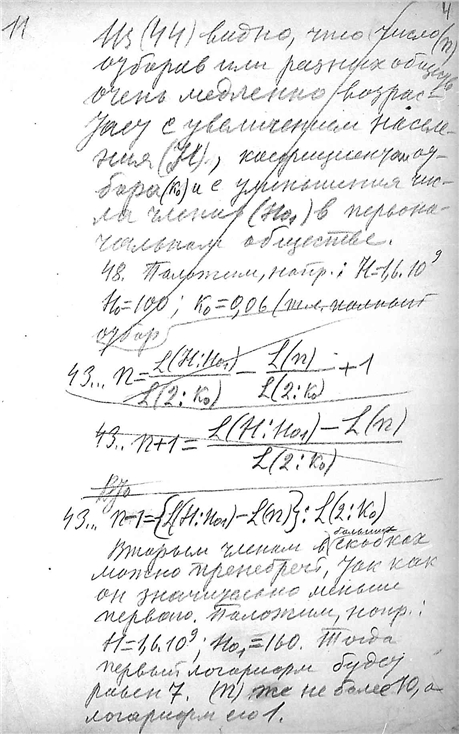 11
4
Из (44) видно, что число (n)
отборов или разных обществ
очень медленно возрас-
тает с увеличением населе-
ния (H), коэфициентом от-
бора (k₀) и с уменьшения чис-
ла членов (H₀₁) в первона-
чальном обществе.
48. Положим, напр.: H=1,6.10⁹
H₀=100; k₀=0,06 (т.е. полный
отбор)
43... n = L(H:H₀₁) / L(2:k₀) - L(n) / L(2:k₀) + 1
43.. n+1 = L(H:H₀₁) - L(n) / L(2:k₀)
43... n-1={L(H:H₀₁)-L(n)}:L(2:k₀)
Вторым членом в больших скобках
можно пренебречь, так как
он значительно меньше
первого. Положим, напр.:
H=1,6.10⁹; H₀₁=160. Тогда
первый логарифм будет
равен 7. (n) же не более 10, а
логарифм его 1.